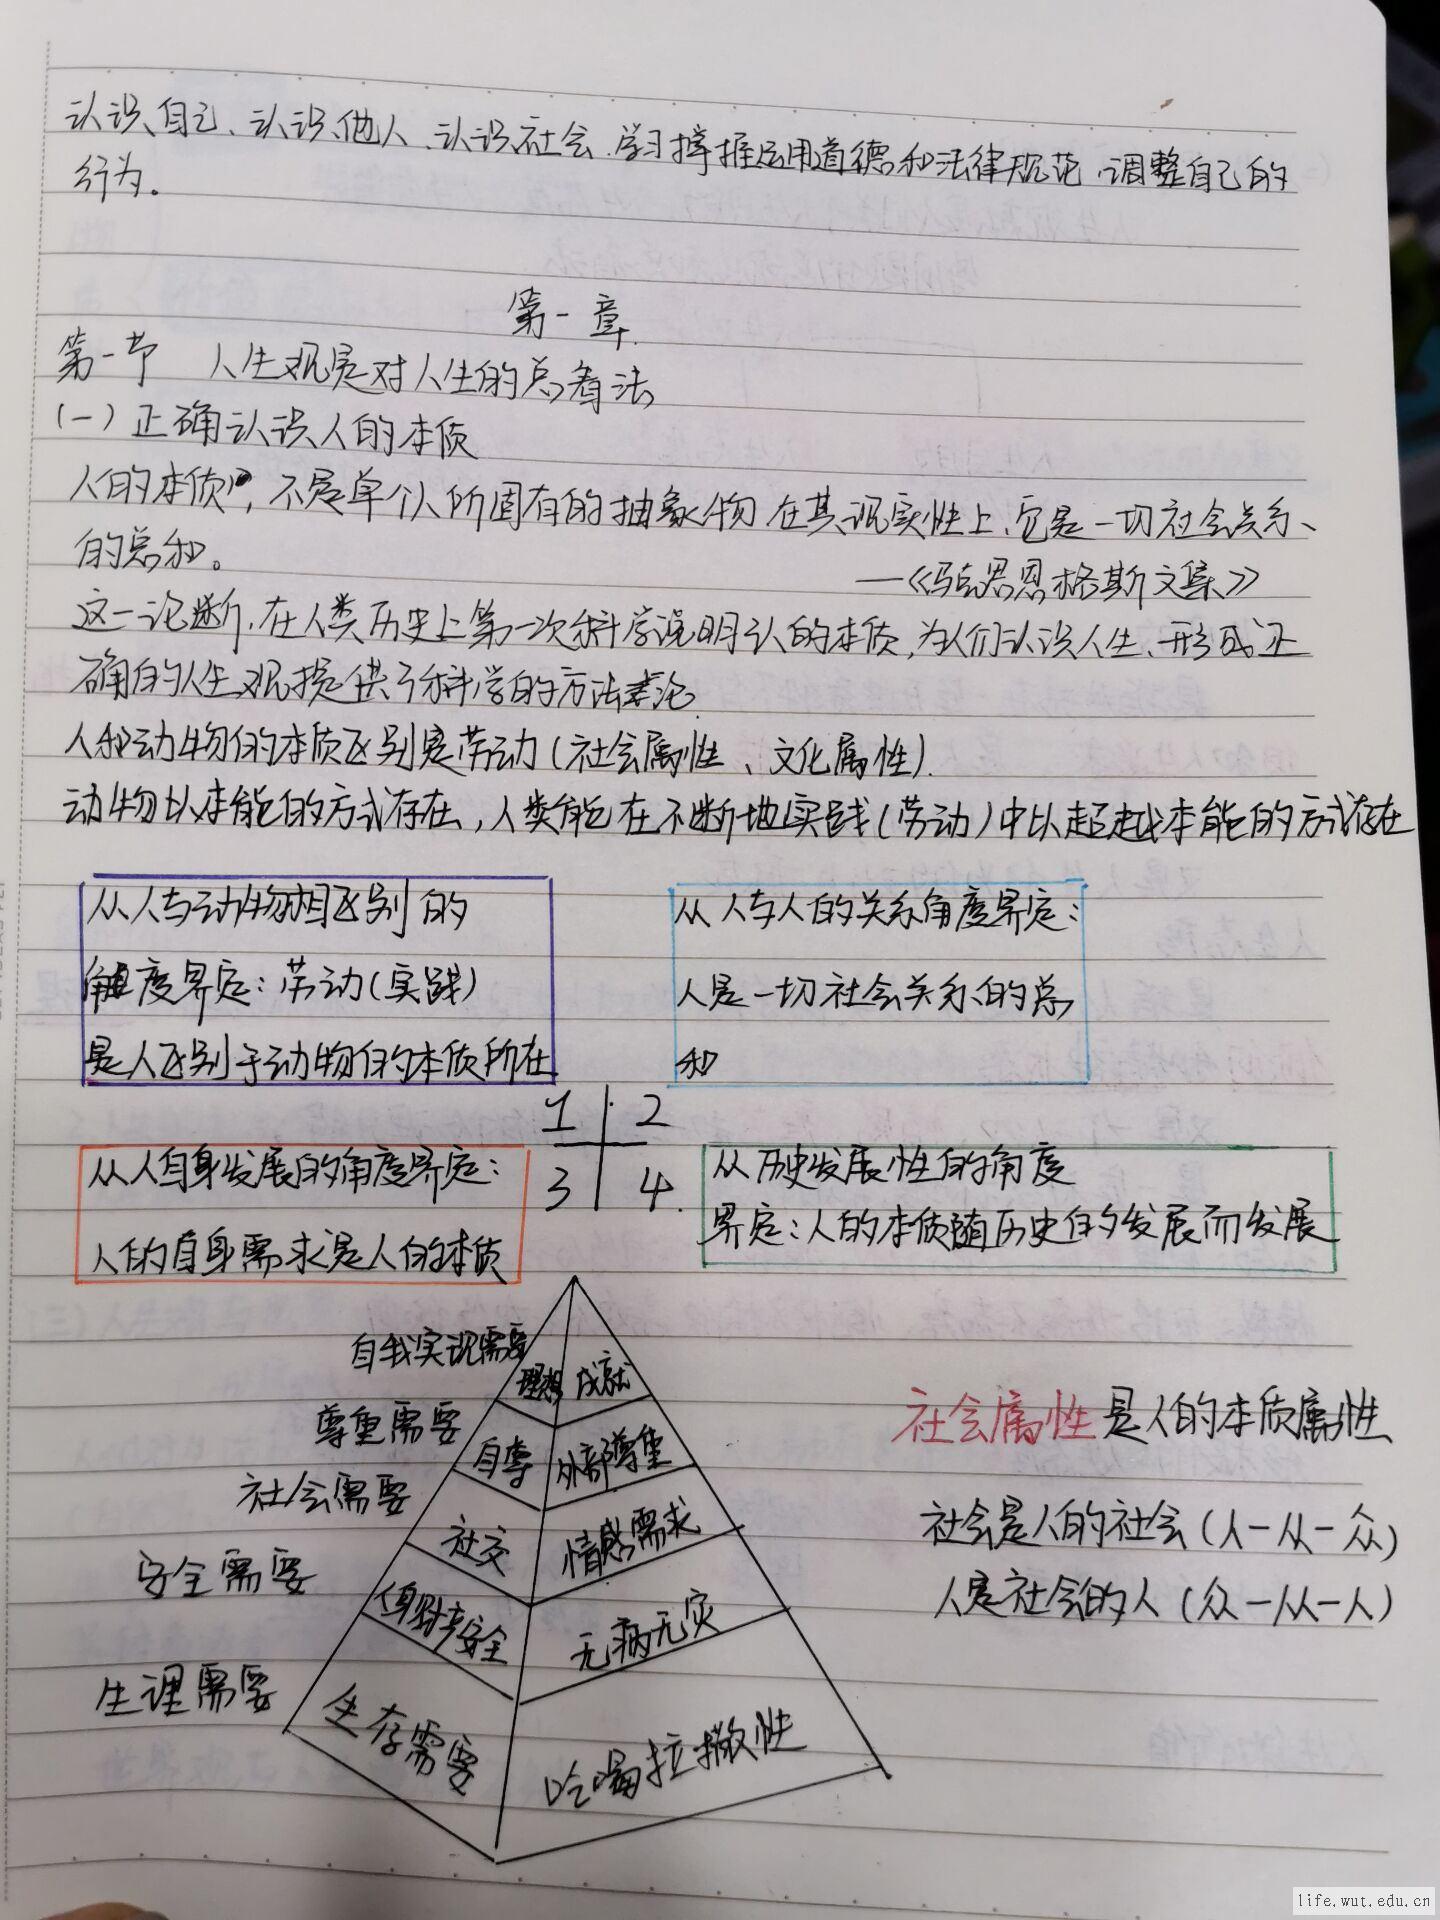 认识自己、认识他人、认识社会、学习掌握运用道德和法律规范、调整自己的
行为。
第一章
第一节 人生观是对人生的总看法
(一)正确认识人的本质
人的本质,不是单个人所固有的抽象物,在其现实性上,它是一切社会关系
的总和。
—《马克思恩格斯文集》
这一论断,在人类历史上第一次科学说明了人的本质,为人们认识人生、形成正
确的人生观提供了科学的方法论
人和动物的本质区别是劳动(社会属性、文化属性).
动物以本能的方式存在,人类能在不断地实践(劳动)中以超越本能的方式存在
从人与动物相区别的
角度界定:劳动(实践)
是人区别于动物的本质所在
从人与人的关系角度界定:
人是一切社会关系的总
和
1 2
3 4
从人自身发展的角度界定:
人的自身需求是人的本质
从历史发展性的角度
界定:人的本质随历史的发展而发展
自我实现需要
理想 成就
尊重需要
自尊 外部尊重
社会需要
社交 情感需求
安全需要
人身财产安全 无病无灾
生理需要
生存需要 吃喝拉撒性
社会属性是人的本质属性
社会是人的社会(人一从一众)
人是社会的人(众一从一人)
life.wut.edu.cn